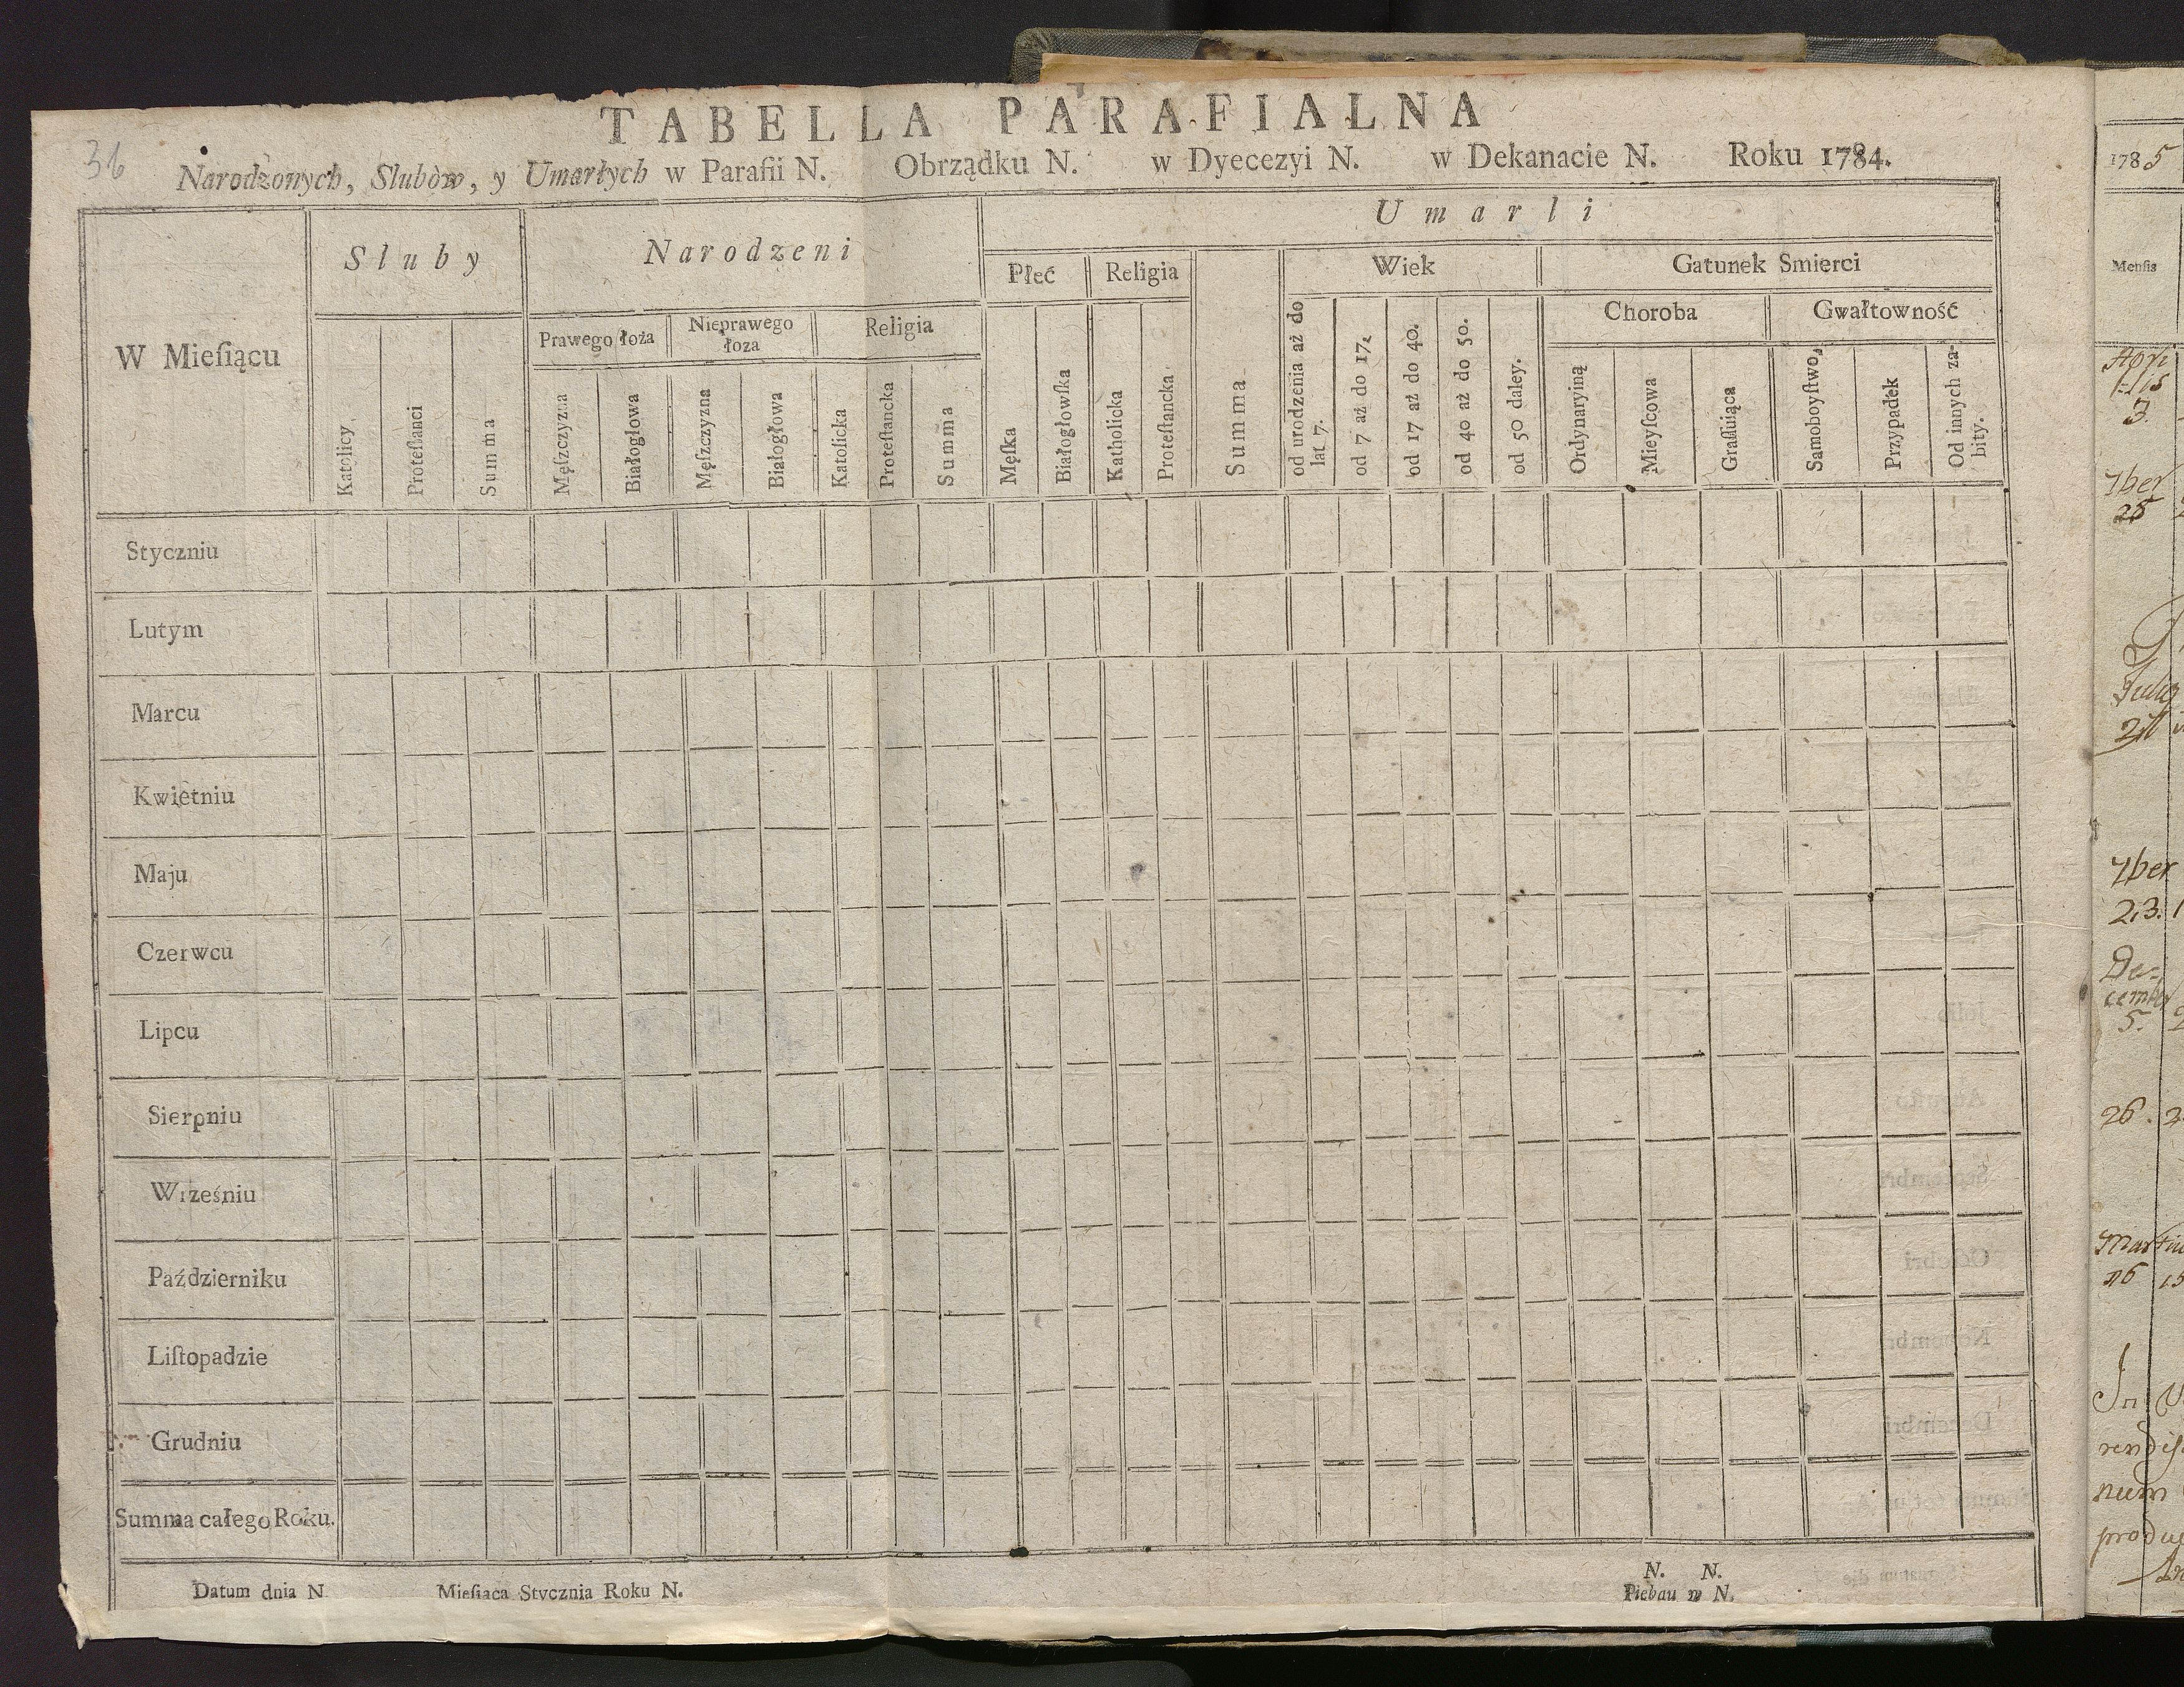 36
TABELLA PARAFIALNA
Narodzonych, Slubòw, y Umarłych w Parafii N. Obrządku N. w Dyecezyi N. w Dekanacie N. Roku 1784.
W Mieſiącu
Sluby
Narodzeni
Umarli
Prawego łoża
Nieprawego
łoza
Religia
Płeć
Religia
Summa
Wiek
Gatunek Smierci
Choroba
Gwałtowność
Katolicy
Proteſtanci
Summa
Męſzczyzna
Białogłowa
Męſzczyzna
Białogłowa
Katolicka
Proteſtancka
Summa
Męſka
Białogłowſka
Katholicka
Proteſtancka
od urodzenia aż do
lat 7.
od 7 aż do 17.
od 17 aż do 40.
od 40 aż do 50.
od 50 daley.
Ordynaryiną
Mieyſcowa
Graſſuiąca
Samoboyſtwo,
Przypadek
Od innych za-
bity.
Styczniu
Lutym
Marcu
Kwietniu
Maju
Czerwcu
Lipcu
Sierpniu
Wrześniu
Październiku
Liſtopadzie
Grudniu
Summa całego Roku.
Datum dnia N. Mieſiąca Stycznia Roku N.
N. N.
Pleban w N.
1785
Menſis
7ber
25
7ber
23.
De=
cember
5.
26.
Martiu
num